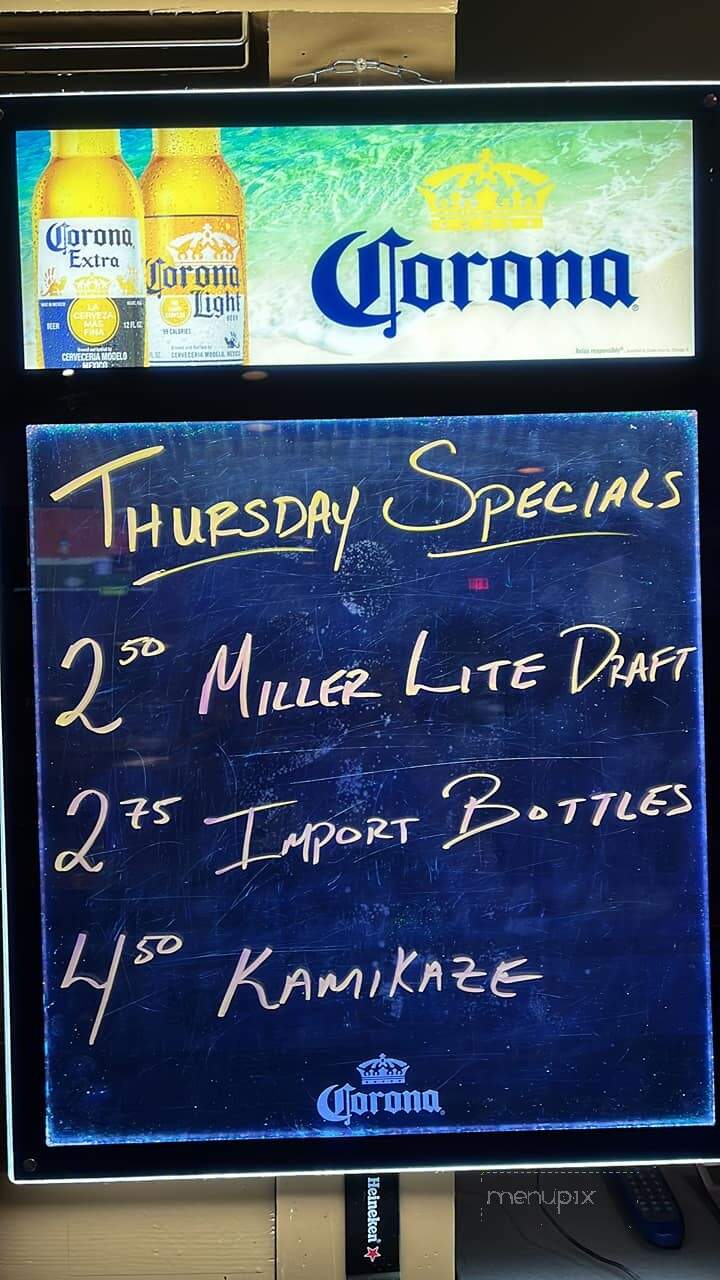 Corona
Extra
LA
CERVEZA
MAS
FINA
BEER
12 FL. OZ.
CERVECERIA MODELO
MEXICO
Corona
Light
BEER
99 CALORIES
CERVECERIA MODELO, MEXICO
Corona
Relax responsibly
THURSDAY SPECIALS
2 50 MILLER LITE DRAFT
2 75 IMPORT BOTTLES
4 50 KAMIKAZE
Corona
Heineken
menupix